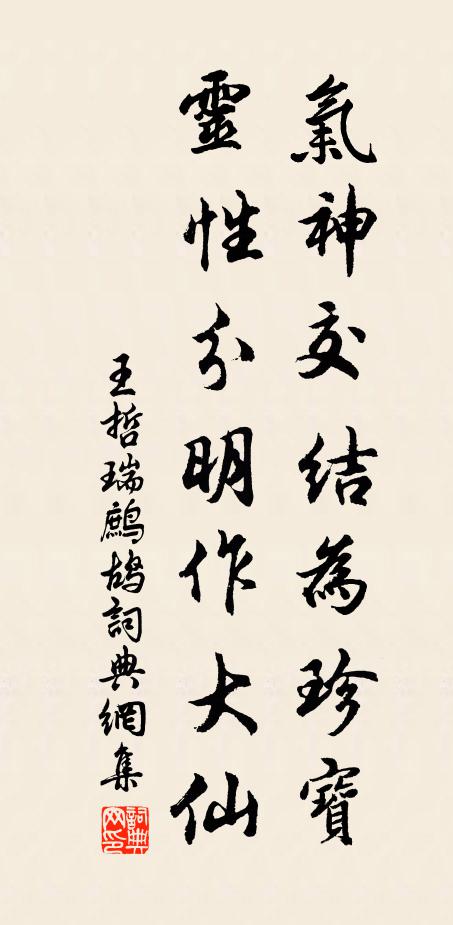 氣神交結為珍寶
靈性分明作大仙
王哲瑞鷓鴣詞典網集
詞典网印